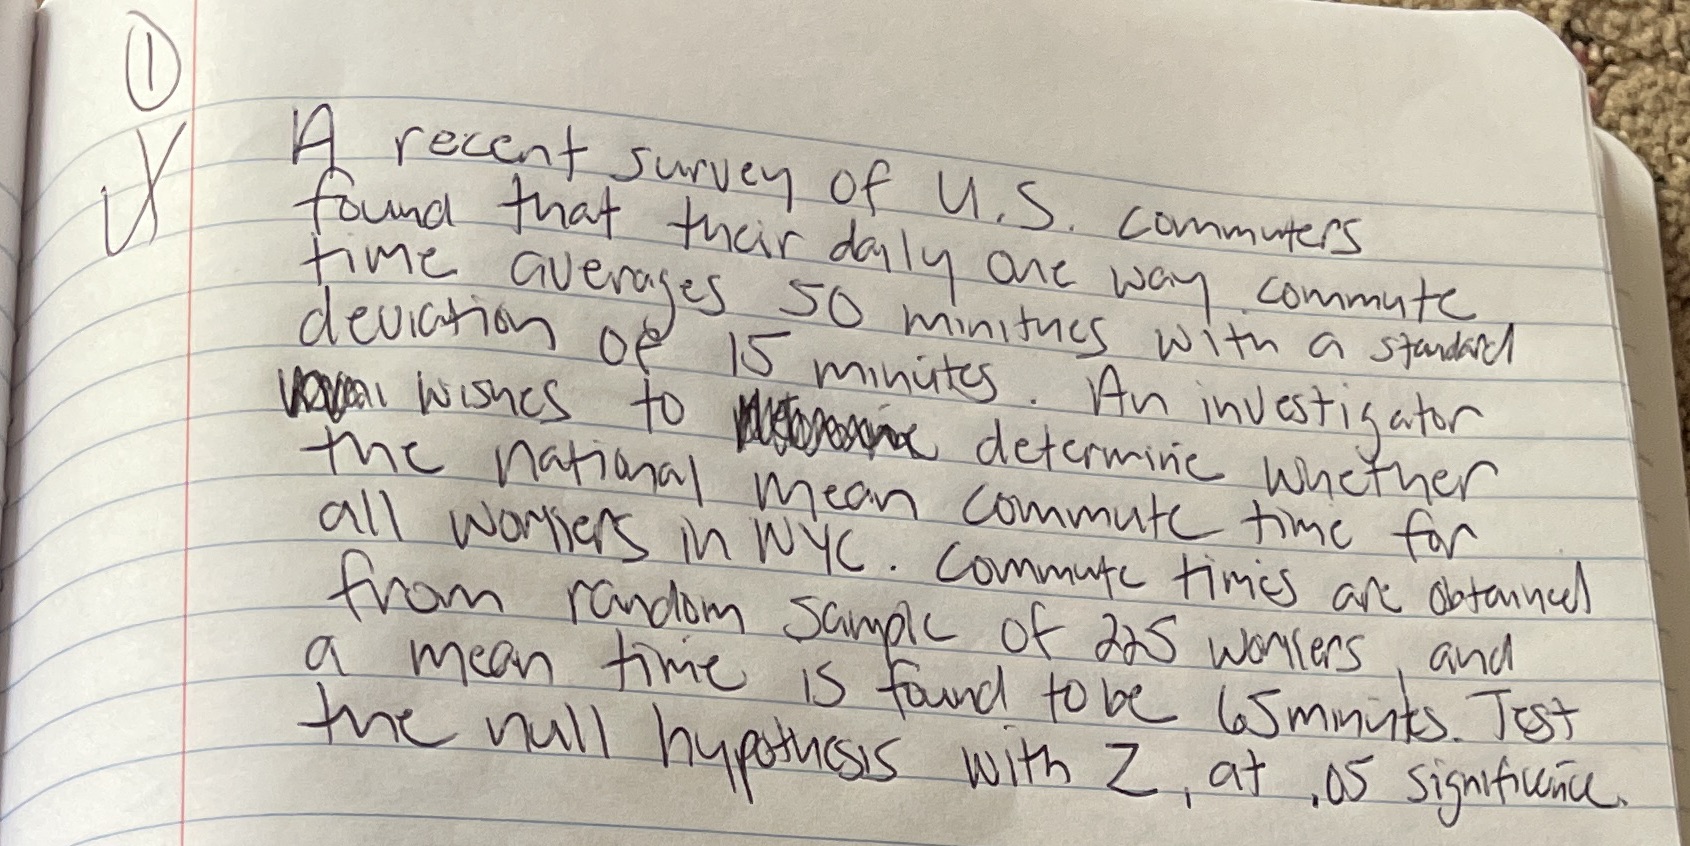 ①
A recent survey of U.S. commuters
found that their daily one way commute
time averages 50 minitues with a standard
deviation of 15 minutes. An investigator
wishes to determine whether
the national mean commute time for
all workers in NYC. Commute times are obtained
from random sample of 225 workers, and
a mean time is found to be 65 minutes. Test
the null hypothesis with Z, at .05 significance.